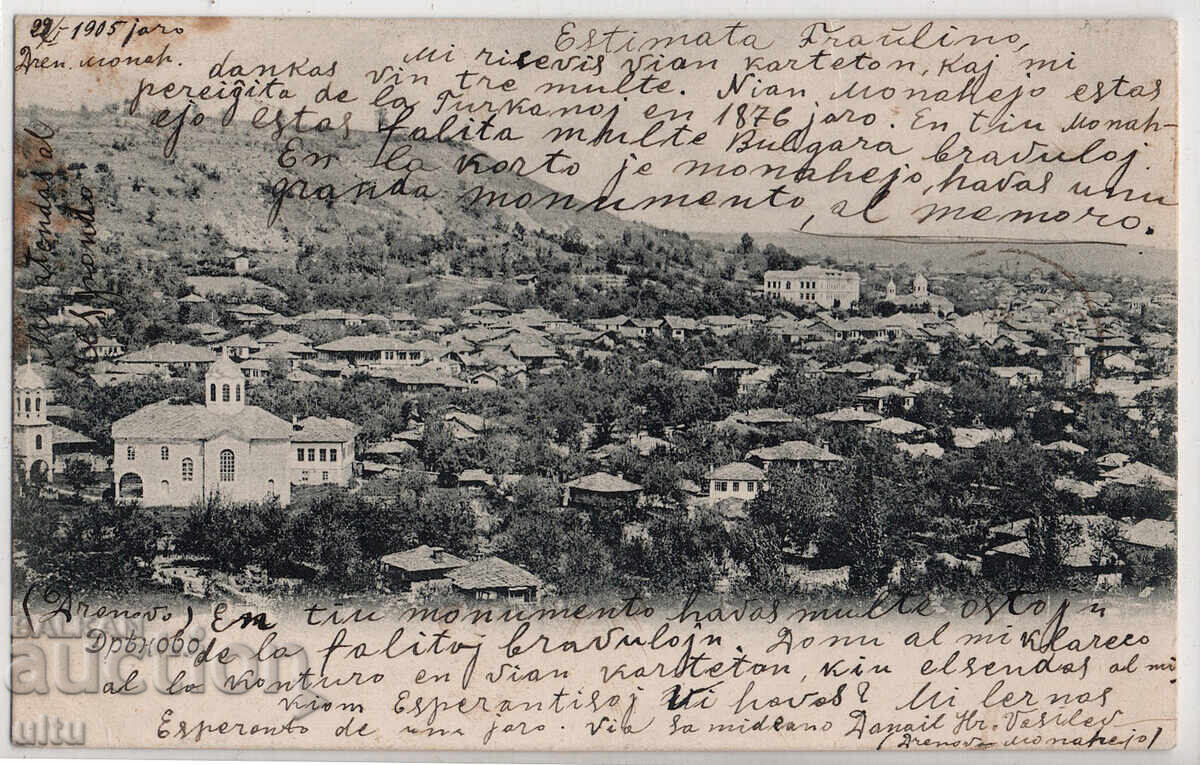 22/I 1905 jaro
Dren. Monah.
Estimata Fraŭlino,
Mi ricevis vian karteton, kaj mi
dankas vin tre multe. Nian Monahejo estas
pereiĝita de la Turkanoj en 1876 jaro. En tiu Monah-
ejo estas falita multe Bulgara braduloj
En la korto je monahejo, havas unu
granda monumento, al memoro.
atondas al
respondo
(Drenovo) En tiu monumento havas multe ostoju
Дрѣново, de la falitoj braduloju. Donu al mi klareco
al la konturo en vian karteton, kiu elsendas al mi
kiom Esperantisoj Vi havas? Mi lernas
Esperanto de unu jaro. Via samideano Danail Hr. Vasilev
(Drenova Monahejo)
BALKAN
auction
ultu